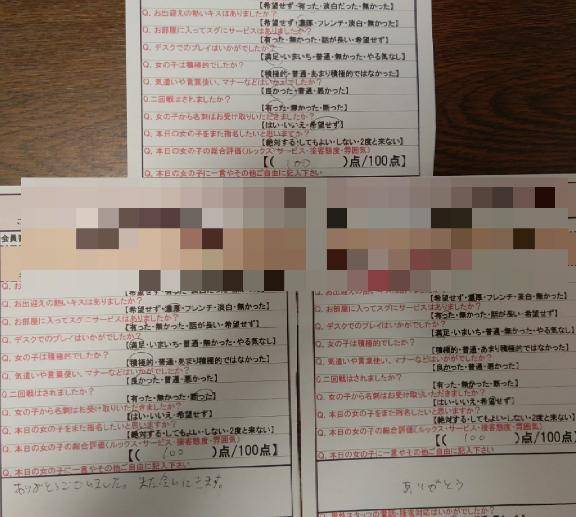 【希望せず・有った・淡白だった・無かった】
Q. お出迎えの熱いキスはありましたか?
【希望せず・濃厚・フレンチ・淡白・無かった】
Q. お部屋に入ってスグにサービスはありましたか?
【有った・無かった・話が長い・希望せず】
Q. デスクでのプレイはいかがでしたか?
【満足・いまいち・普通・無かった・やる気なし】
Q. 女の子は積極的でしたか?
【積極的・普通・あまり積極的ではなかった】
Q. 気遣いや言葉使い、マナーなどはいかがでしたか?
【良かった・普通・悪かった】
Q. 二回戦はされましたか?
【有った・無かった・断った】
Q. 女の子から名刺はお受け取りいただきましたか?
【はい・いいえ・希望せず】
Q. 本日の女の子をまた指名したいと思いますか?
【絶対する・してもよい・しない・2度と来ない】
Q. 本日の女の子の総合評価(ルックス・サービス・接客態度・雰囲気)
【( 100 )点/100点】
Q. 本日の女の子に一言やその他ご自由に記入下さい
会員
Q. お出迎えの熱いキスはありましたか?
【希望せず・濃厚・フレンチ・淡白・無かった】
Q. お部屋に入ってスグにサービスはありましたか?
【有った・無かった・話が長い・希望せず】
Q. デスクでのプレイはいかがでしたか?
【満足・いまいち・普通・無かった・やる気なし】
Q. 女の子は積極的でしたか?
【積極的・普通・あまり積極的ではなかった】
Q. 気遣いや言葉使い、マナーなどはいかがでしたか?
【良かった・普通・悪かった】
Q. 二回戦はされましたか?
【有った・無かった・断った】
Q. 女の子から名刺はお受け取りいただきましたか?
【はい・いいえ・希望せず】
Q. 本日の女の子をまた指名したいと思いますか?
【絶対する・してもよい・しない・2度と来ない】
Q. 本日の女の子の総合評価(ルックス・サービス・接客態度・雰囲気)
【( 100 )点/100点】
Q. 本日の女の子に一言やその他ご自由に記入下さい
ありがとうございました。また会いにきます。
【希望せず・濃厚・フレンチ・淡白・無かった】
Q. お部屋に入ってスグにサービスはありましたか?
【有った・無かった・話が長い・希望せず】
Q. デスクでのプレイはいかがでしたか?
【満足・いまいち・普通・無かった・やる気なし】
Q. 女の子は積極的でしたか?
【積極的・普通・あまり積極的ではなかった】
Q. 気遣いや言葉使い、マナーなどはいかがでしたか?
【良かった・普通・悪かった】
Q. 二回戦はされましたか?
【有った・無かった・断った】
Q. 女の子から名刺はお受け取りいただきましたか?
【はい・いいえ・希望せず】
Q. 本日の女の子をまた指名したいと思いますか?
【絶対する・してもよい・しない・2度と来ない】
Q. 本日の女の子の総合評価(ルックス・サービス・接客態度・雰囲気)
【( 100 )点/100点】
Q. 本日の女の子に一言やその他ご自由に記入下さい
ありがとう